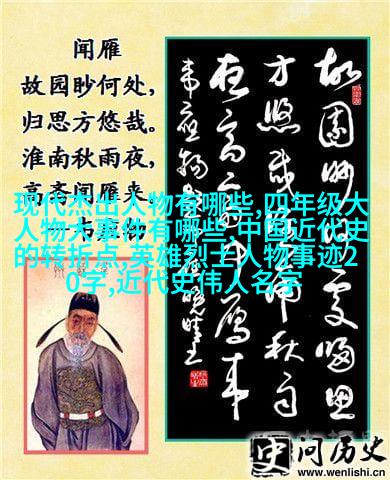 闻雁
故园眇何处,
归思方悠哉。
淮南秋雨夜,
高斋闻雁来。
现代杰出人物有哪些,四年级大
人物大事件有哪些,中国近代史
的转折点,英雄烈士人物事迹2
0字,近代史伟人名字
故园眇何处归思
方悠哉淮南秋雨
夜高斋闻雁来
问历史
www.wenlishi.com